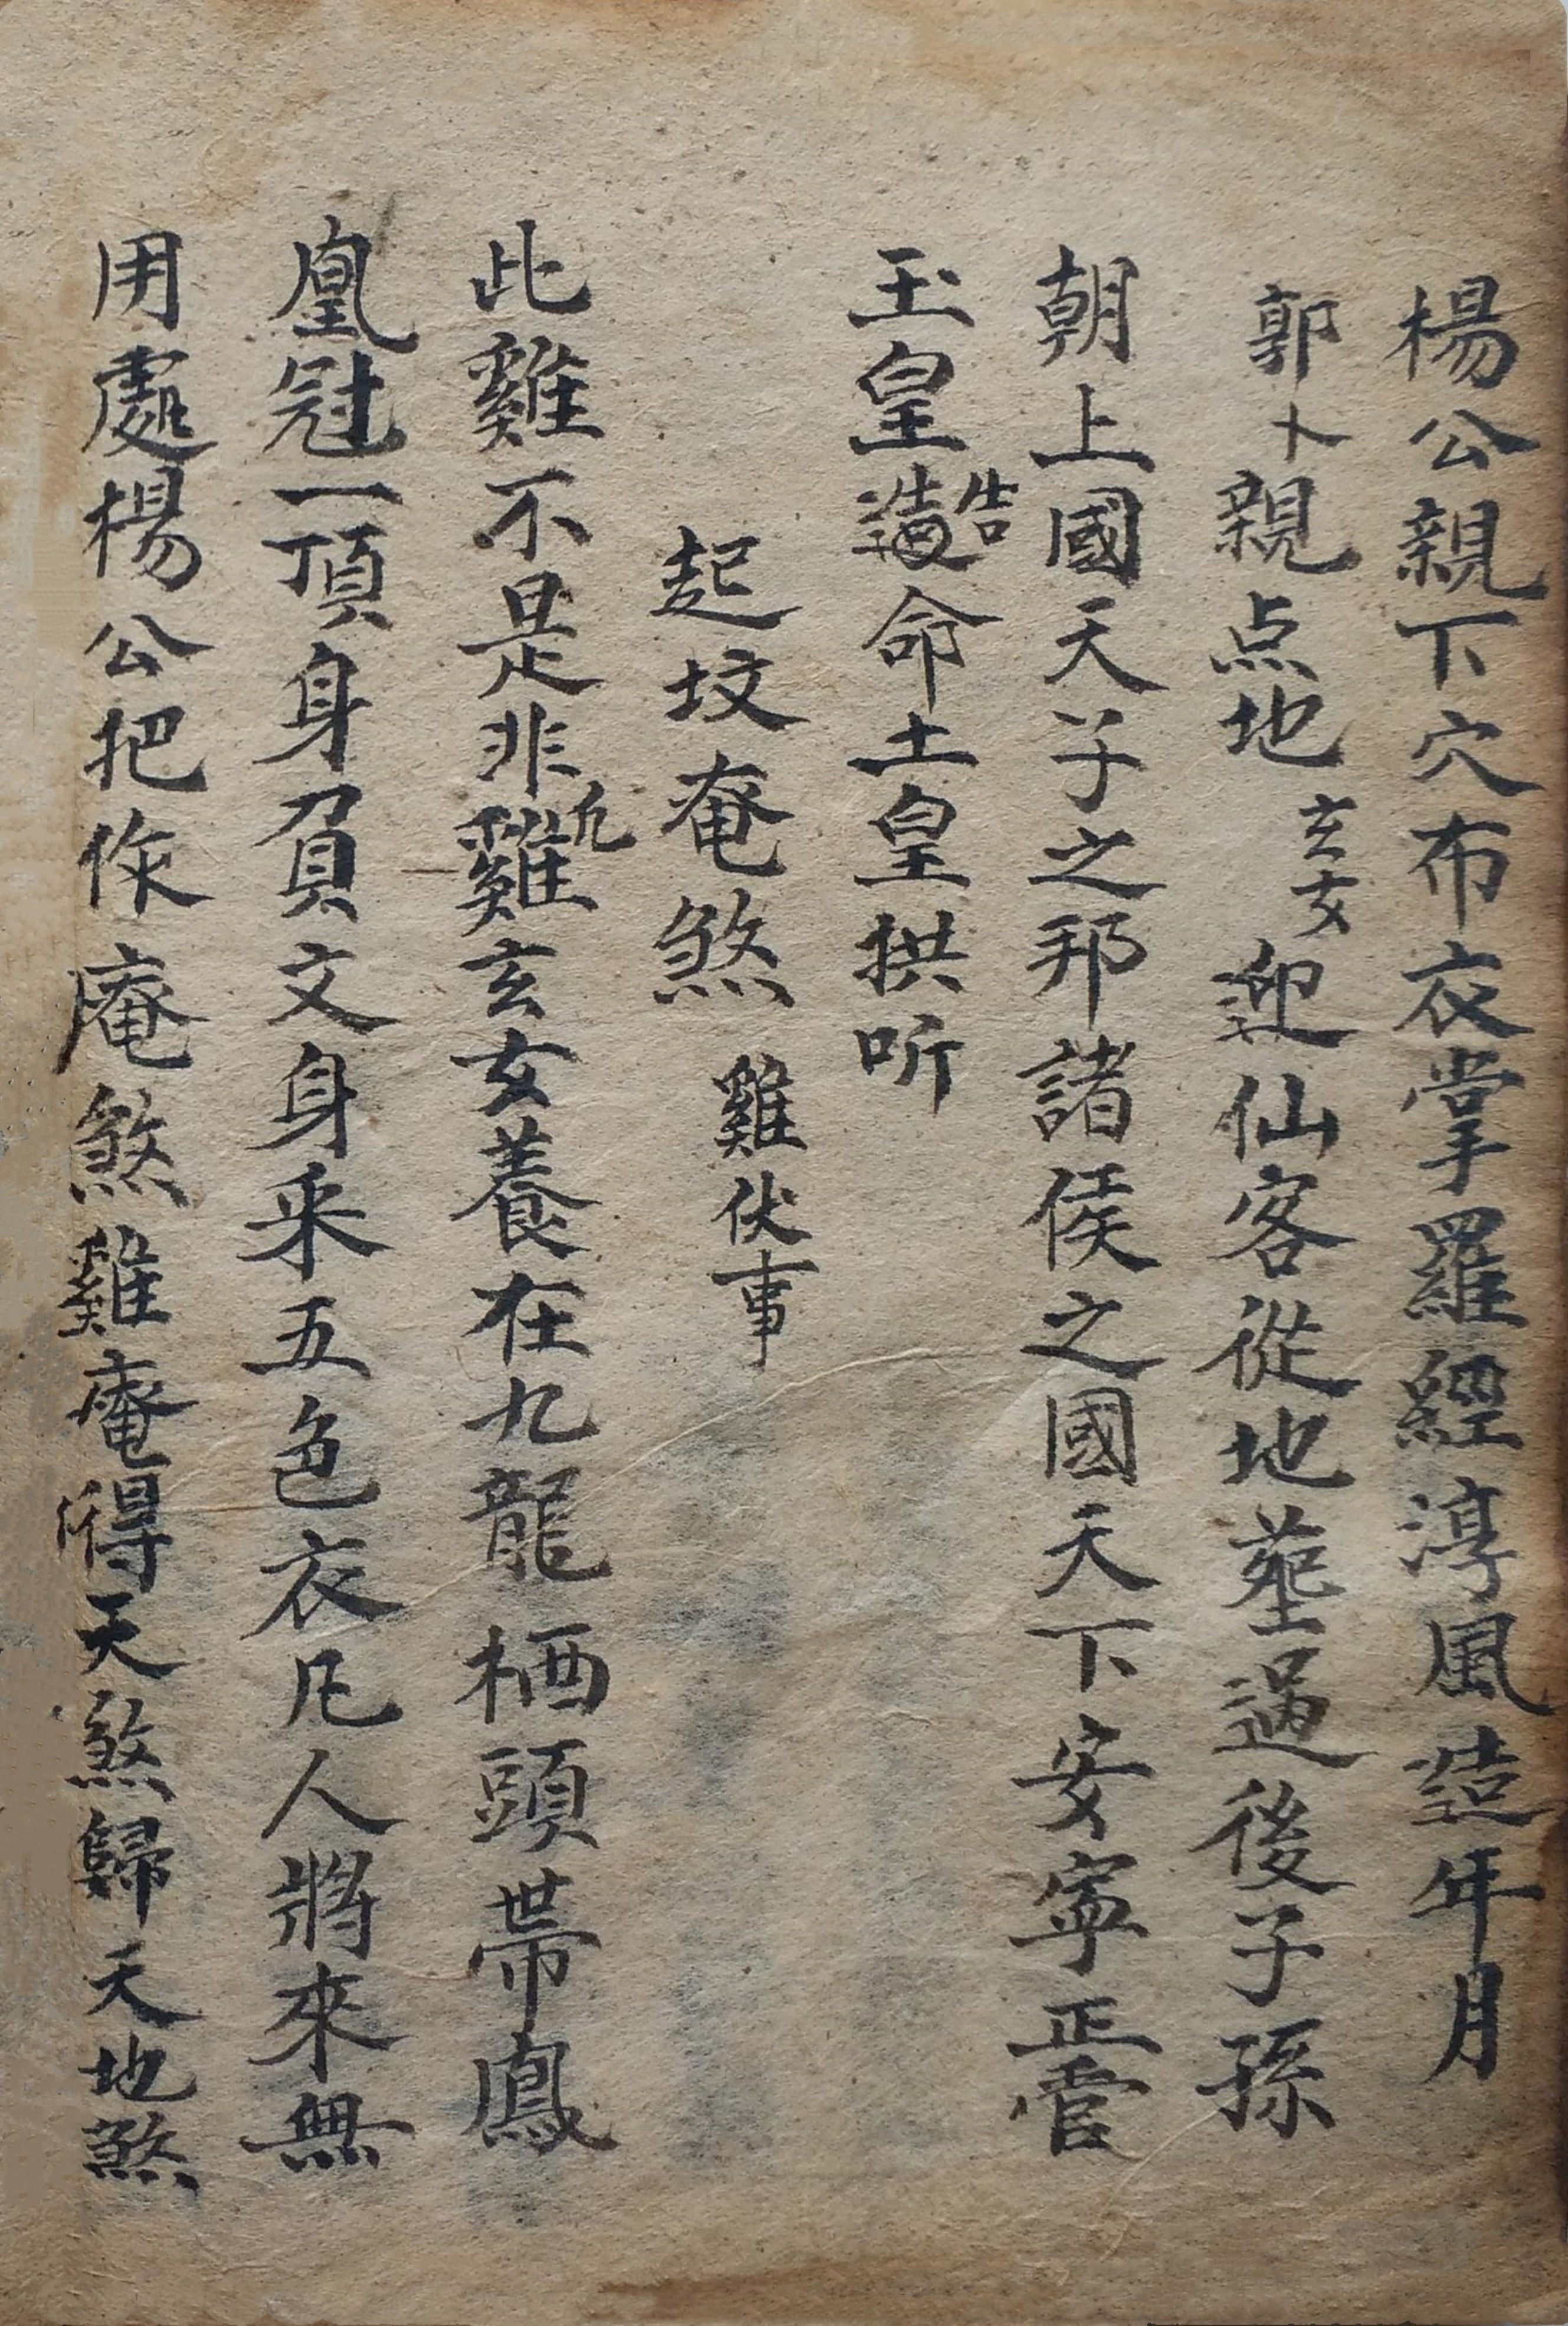 楊公親下穴布衣掌羅經淳風造年月
郭卜親点地玄女迎仙客從地塟過後子孫
朝上國天子之邦諸侯之國天下安寧正管
玉皇造告命土皇拱听
起坟奄煞雞伏事
此雞不是非雞九玄女養在九龍栖頭帶鳳
凰冠一頂身負文身釆五色衣凡人將來無
用處楊公把作庵煞雞庵得天煞歸天地煞